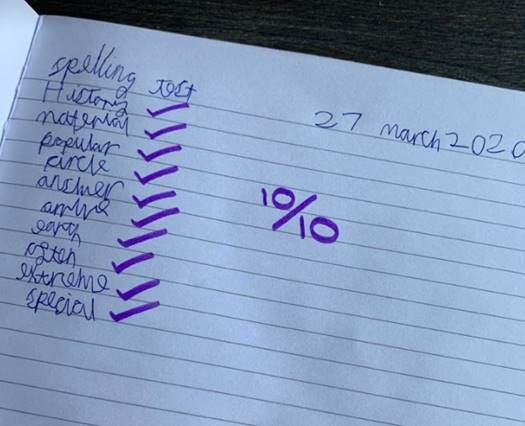 spelling test
History
material
popular
circle
answer
arrive
earth
often
extreme
special
27 march 2020
10/10